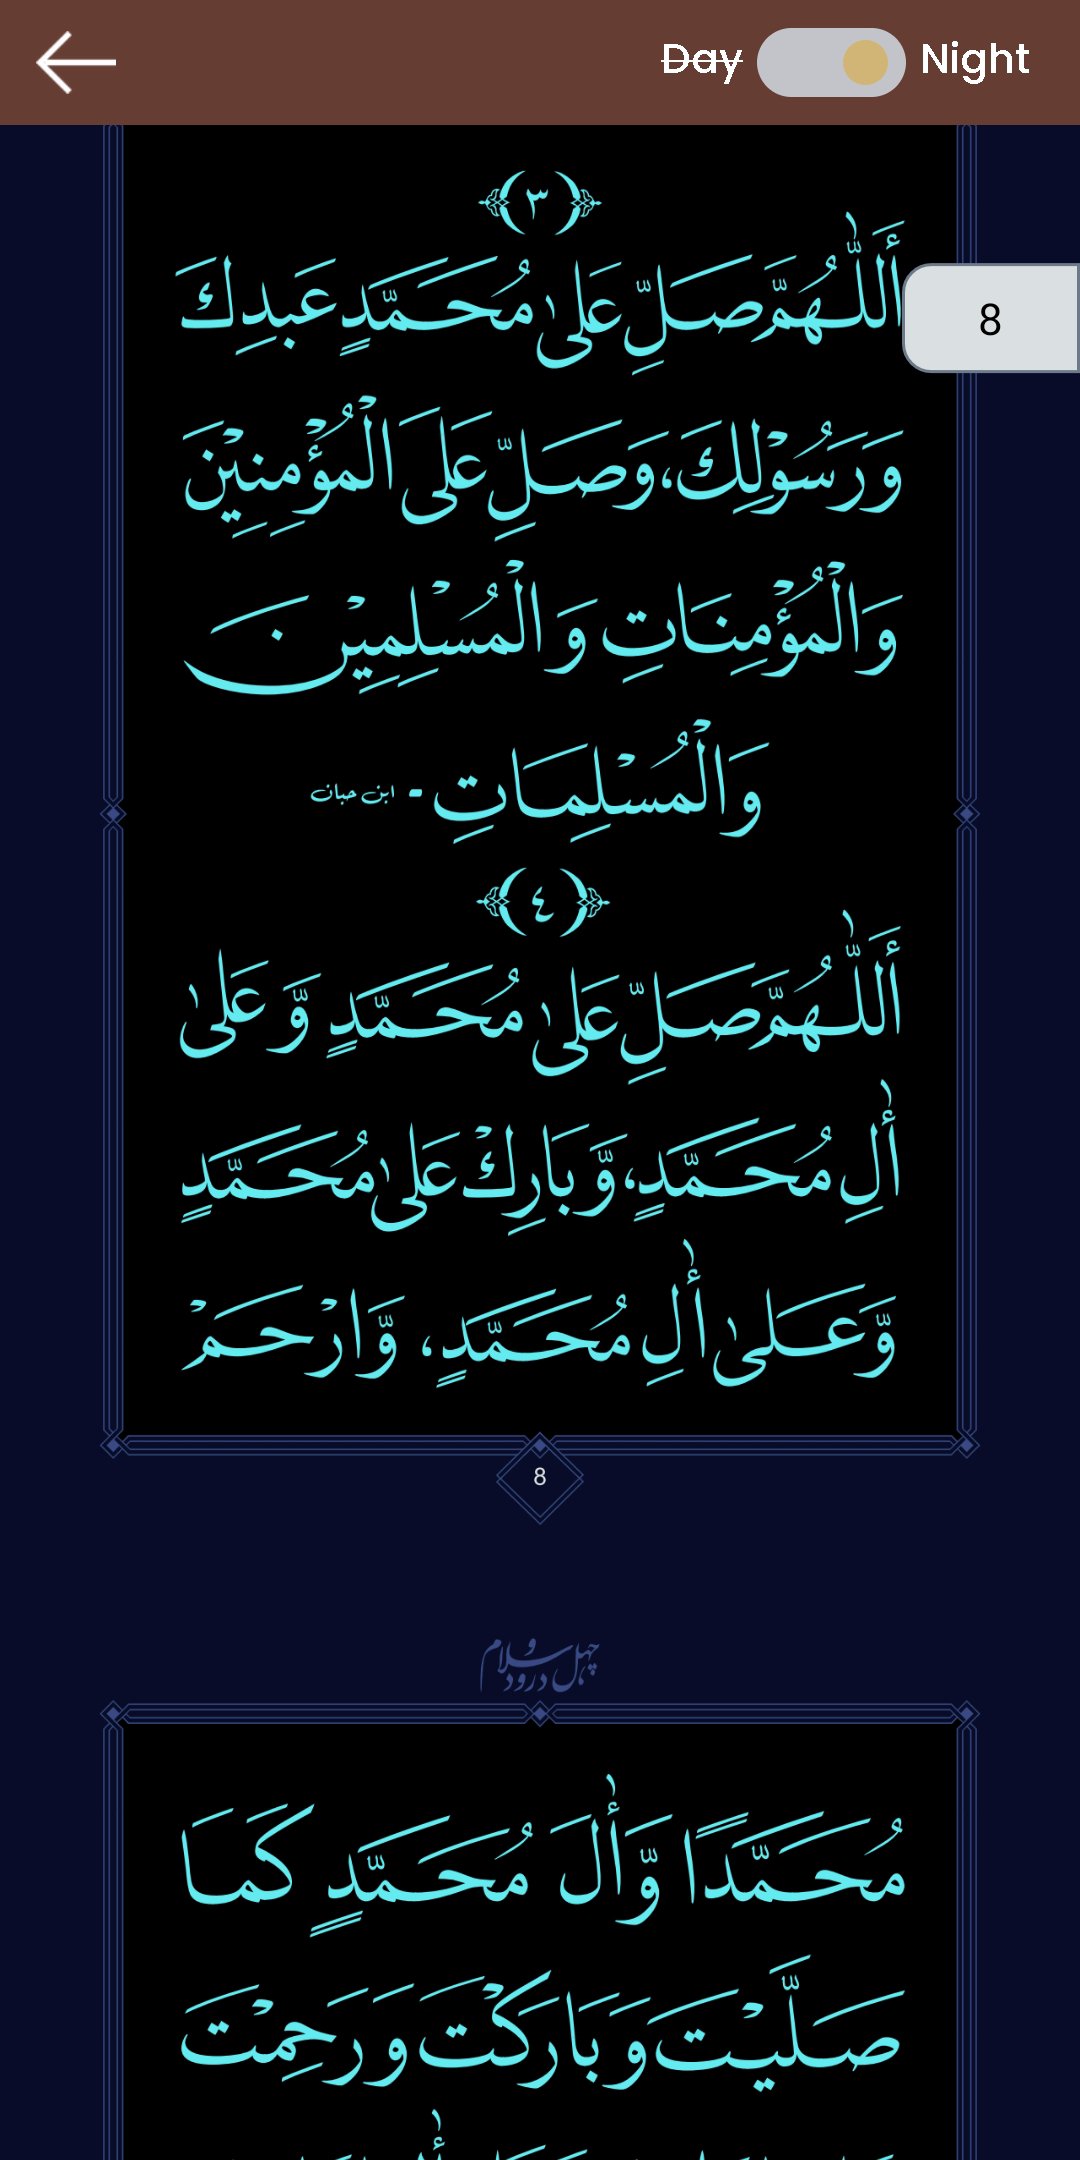 Day Night
﴿٣﴾
أَللّٰهُمَّ صَلِّ عَلىٰ مُحَمَّدٍ عَبدِكَ
8
وَرَسُوْلِكَ، وَصَلِّ عَلَى الْمُؤْمِنِيْنَ
وَالْمُؤْمِنَاتِ وَ الْمُسْلِمِيْنَ
وَالْمُسْلِمَاتِ - ابن حبان
﴿٤﴾
أَللّٰهُمَّ صَلِّ عَلىٰ مُحَمَّدٍ وَّ عَلىٰ
أٰلِ مُحَمَّدٍ، وَّ بَارِكْ عَلىٰ مُحَمَّدٍ
وَّعَلىٰ أٰلِ مُحَمَّدٍ، وَّارْحَمْ
8
چہل درود و سلام
مُحَمَّدًا وَّأٰلَ مُحَمَّدٍ كَمَا
صَلَّيْتَ وَ بَارَكْتَ وَ رَحِمْتَ